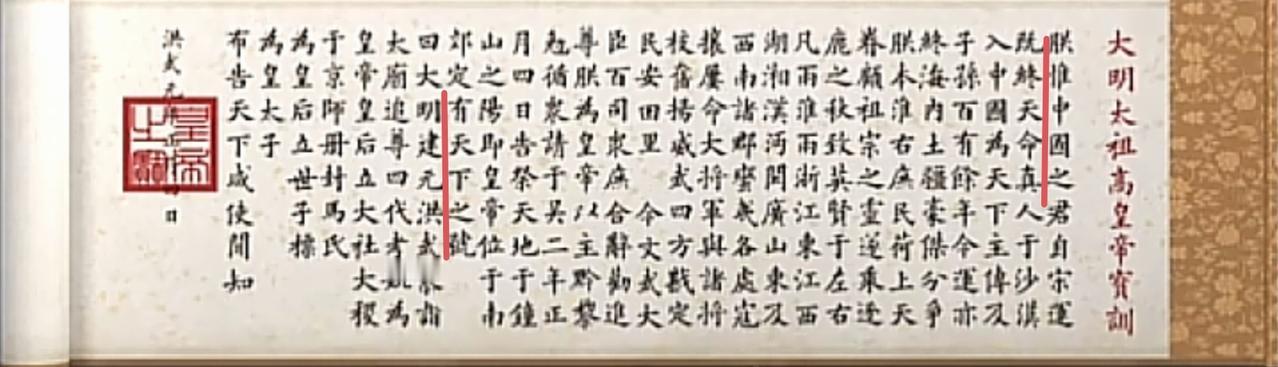 大明太祖高皇帝寶訓
朕惟中國之君自宋運
既終天命真人于沙漠
入中國為天下主傳及
子孫百有餘年今運亦
終海內土疆豪傑分爭
朕本淮右庶民荷上天
眷顧祖宗之靈遂乘逐
鹿之秋致英賢于左右
凡兩淮兩浙江東江西
湖湘漢沔閩廣山東及
西南諸郡蠻夷各處寇
攘屢命大將軍與諸將
校奮揚威武四方戡定
民安田里 今文武大
臣百司衆庶合辭勸進
尊朕為皇帝以主黔黎
勉循衆請于吳二年正
月四日告祭天地于鐘
山之陽即皇帝位于南
郊定有天下之號
曰大明建元洪武恭詣
太廟追尊四代考妣為
皇帝皇后立大社大稷
于京師冊封馬氏
為皇后立世子標
為皇太子
布告天下咸使聞知
洪武元年正 日
皇帝之寶